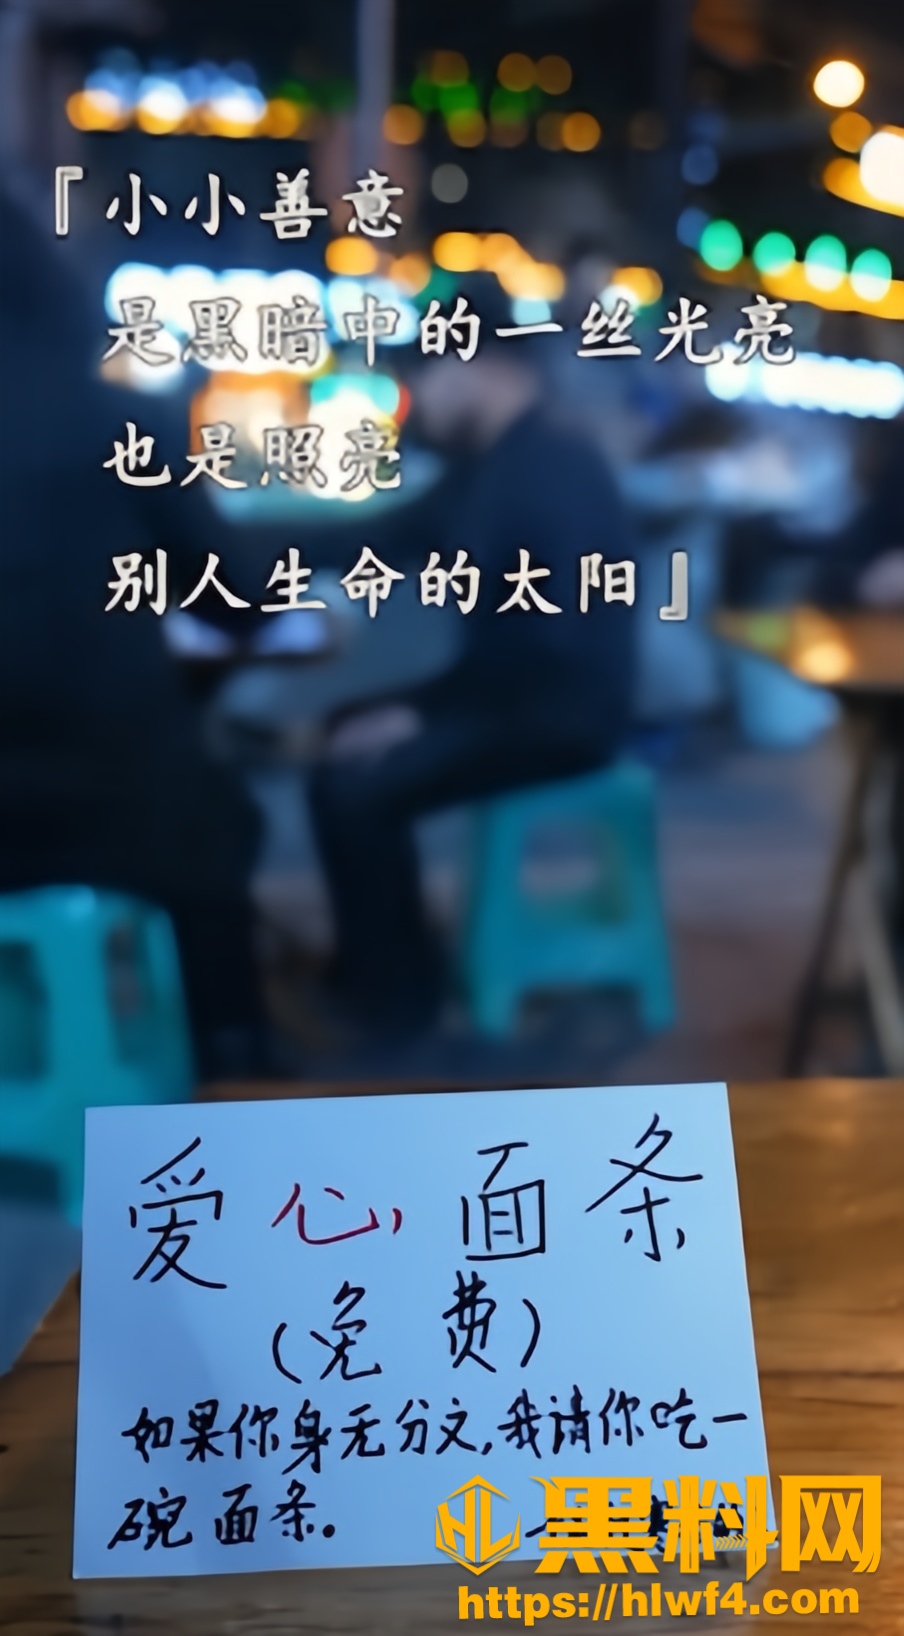 『小小善意
是黑暗中的一丝光亮
也是照亮
别人生命的太阳』
爱心面条
（免费）
如果你身无分文,我请你吃一
碗面条.
HL 黑料网
https://hlwf4.com